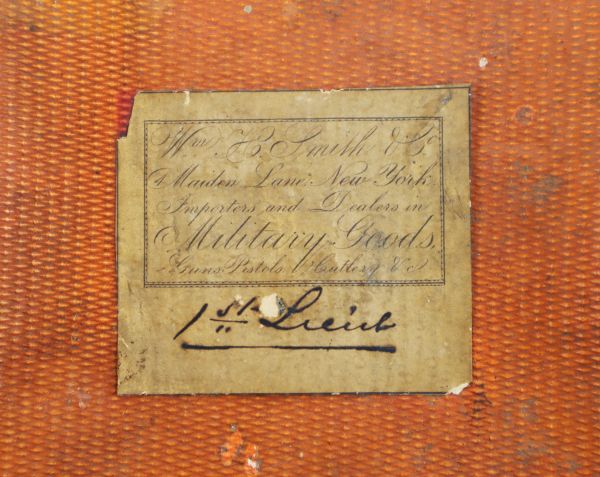 Wm. H. Smith & Co
4 Maiden Lane, New York
Importers and Dealers in
Military Goods,
Guns, Pistols, Cutlery &c
1st Lieut